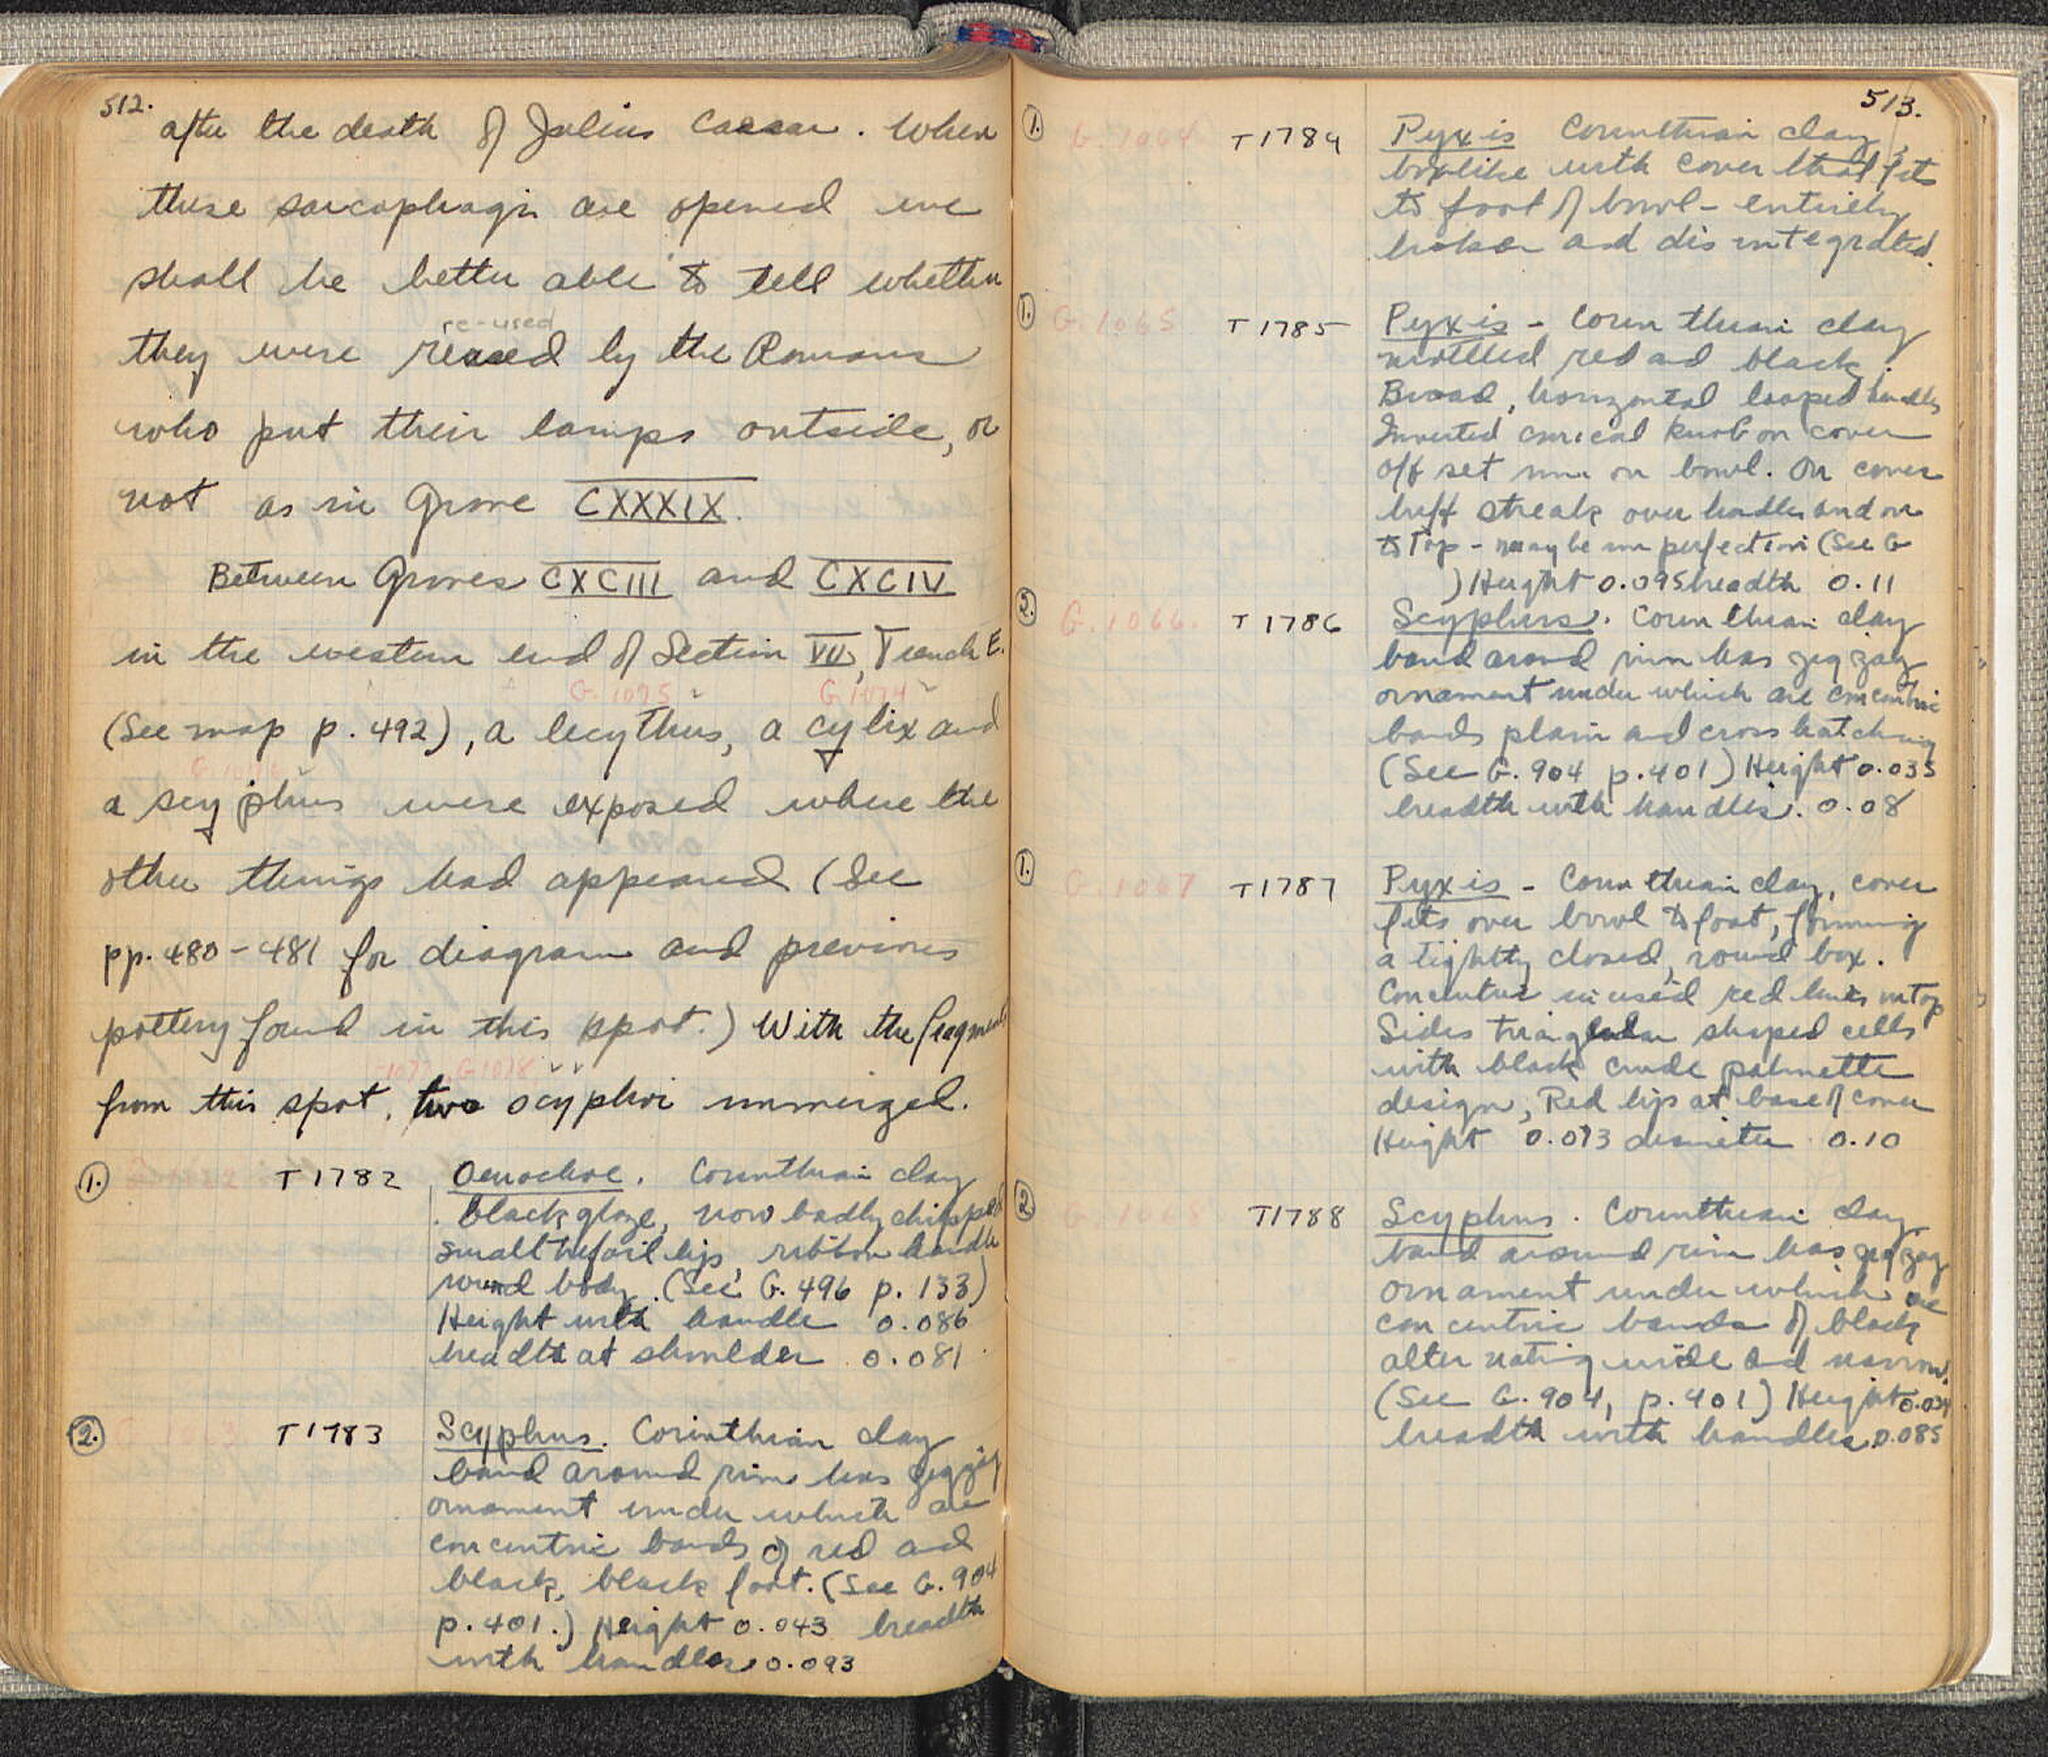 512.
after the death of Julius Caesar. When
these sarcophagi are opened we
shall be better able to tell whether
re-used
they were reused by the Romans
who put their lamps outside, or
not as in Grave CXXXIX.
Between Graves CXCIII and CXCIV
in the western end of Section VII, Trench E.
G.1075 G.1074
(See map p. 492), a lecythus, a cylix and
a scyphus were exposed where the
other things had appeared (See
pp. 480-481 for diagram and previous
pottery found in this spot.) With the fragments
1077, G1078
from this spot, two scyphoi immerged.
1. T1782 Oenochoe. Corinthian clay
black glaze, now badly chipped
small trefoil lip, ribbon handle
round body. (See G. 496 p. 133)
Height with handle 0.086
breadth at shoulder 0.081
2. T1783 Scyphus. Corinthian clay
band around rim has zigzag
ornament under which are
concentric bands of red and
black, black foot. (See G. 904
p. 401.) Height 0.043 breadth
with handles 0.093
513.
1. G.1064 T1784 Pyxis Corinthian clay,
boxlike with cover that fits
to foot of bowl - entirely
broken and disintegrated.
1. G.1065 T1785 Pyxis - Corinthian clay
mottled red and black.
Broad, horizontal looped handles
Inverted conical knob on cover
off set rim on bowl. On cover
buff streak over handles and on
to top - maybe imperfection (See G
) Height 0.095 breadth 0.11
2. G.1066. T1786 Scyphus. Corinthian clay
band around rim has zigzag
ornament under which are concentric
bands plain and cross hatching
(See G. 904 p. 401) Height 0.035
breadth with handles. 0.08
1. G.1067 T1787 Pyxis - Corinthian clay, cover
fits over bowl to foot, forming
a tightly closed, round box.
Concentric incised red lines on top
Sides triangular shaped cells
with black crude palmette
design, Red lip at base of cover
Height 0.073 diameter 0.10
2 G.1068 T1788 Scyphus. Corinthian clay
band around rim has zigzag
ornament under which are
concentric bands of black
alternating wide and narrow.
(See G. 904, p. 401) Height
breadth with handles 0.085